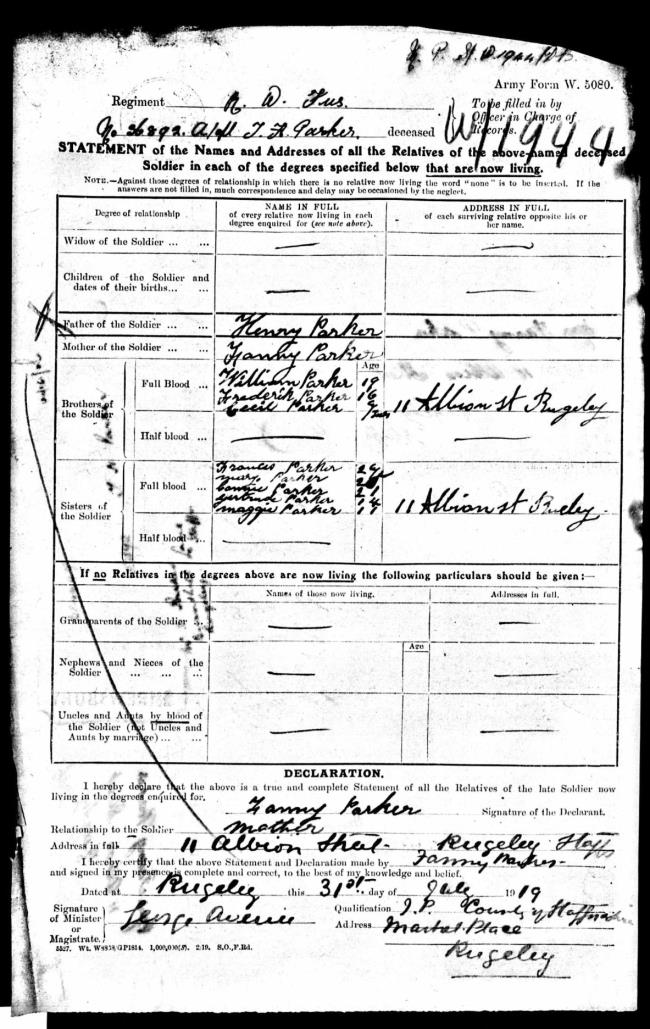 Army Form W. 5080.
Regiment R. W. Fus.
To be filled in by
Officer in Charge of
Records.
No 36892. A/Cpl T. H. Parker. deceased
W/1944
STATEMENT of the Names and Addresses of all the Relatives of the above-named deceased
Soldier in each of the degrees specified below that are now living.
NOTE.—Against those degrees of relationship in which there is no relative now living the word "none" is to be inserted. If the
answers are not filled in, much correspondence and delay may be occasioned by the neglect.
Degree of relationship
NAME IN FULL
of every relative now living in each
degree enquired for (see note above).
ADDRESS IN FULL
of each surviving relative opposite his or
her name.
Widow of the Soldier ... ...
Children of the Soldier and
dates of their births... ...
Father of the Soldier ... ...
Henry Parker
Mother of the Soldier ...
Fanny Parker
Age
Brothers of
the Soldier
Full Blood ...
William Parker 19
Frederik Parker 16
Cecil Parker 9
11 Albion St Rugeley
Half blood ...
Sisters of
the Soldier
Full blood ...
Frances Parker
Mary Parker
Connie Parker 21
Gertrude Parker 14
Maggie Parker 11
11 Albion st Rugeley.
Half blood ...
If no Relatives in the degrees above are now living the following particulars should be given:—
Names of those now living.
Addresses in full.
Grandparents of the Soldier ...
Nephews and Nieces of the
Soldier ... ... ...
Age
Uncles and Aunts by blood of
the Soldier (not Uncles and
Aunts by marriage) ... ...
DECLARATION.
I hereby declare that the above is a true and complete Statement of all the Relatives of the late Soldier now
living in the degrees enquired for.
Fanny Parker Signature of the Declarant.
Relationship to the Soldier mother
Address in full 11 Albion Street Rugeley Staffs
I hereby certify that the above Statement and Declaration made by Fanny Parker
and signed in my presence is complete and correct, to the best of my knowledge and belief.
Dated at Rugeley this 31st. day of July 1919
Signature
of Minister
or
Magistrate.
George
Qualification J.P. County of Staffordshire
Address Market Place
Rugeley
5527. Wt. W8858/GP1814. 1,000,000(5). 2/19. S.O.,F.Rd.